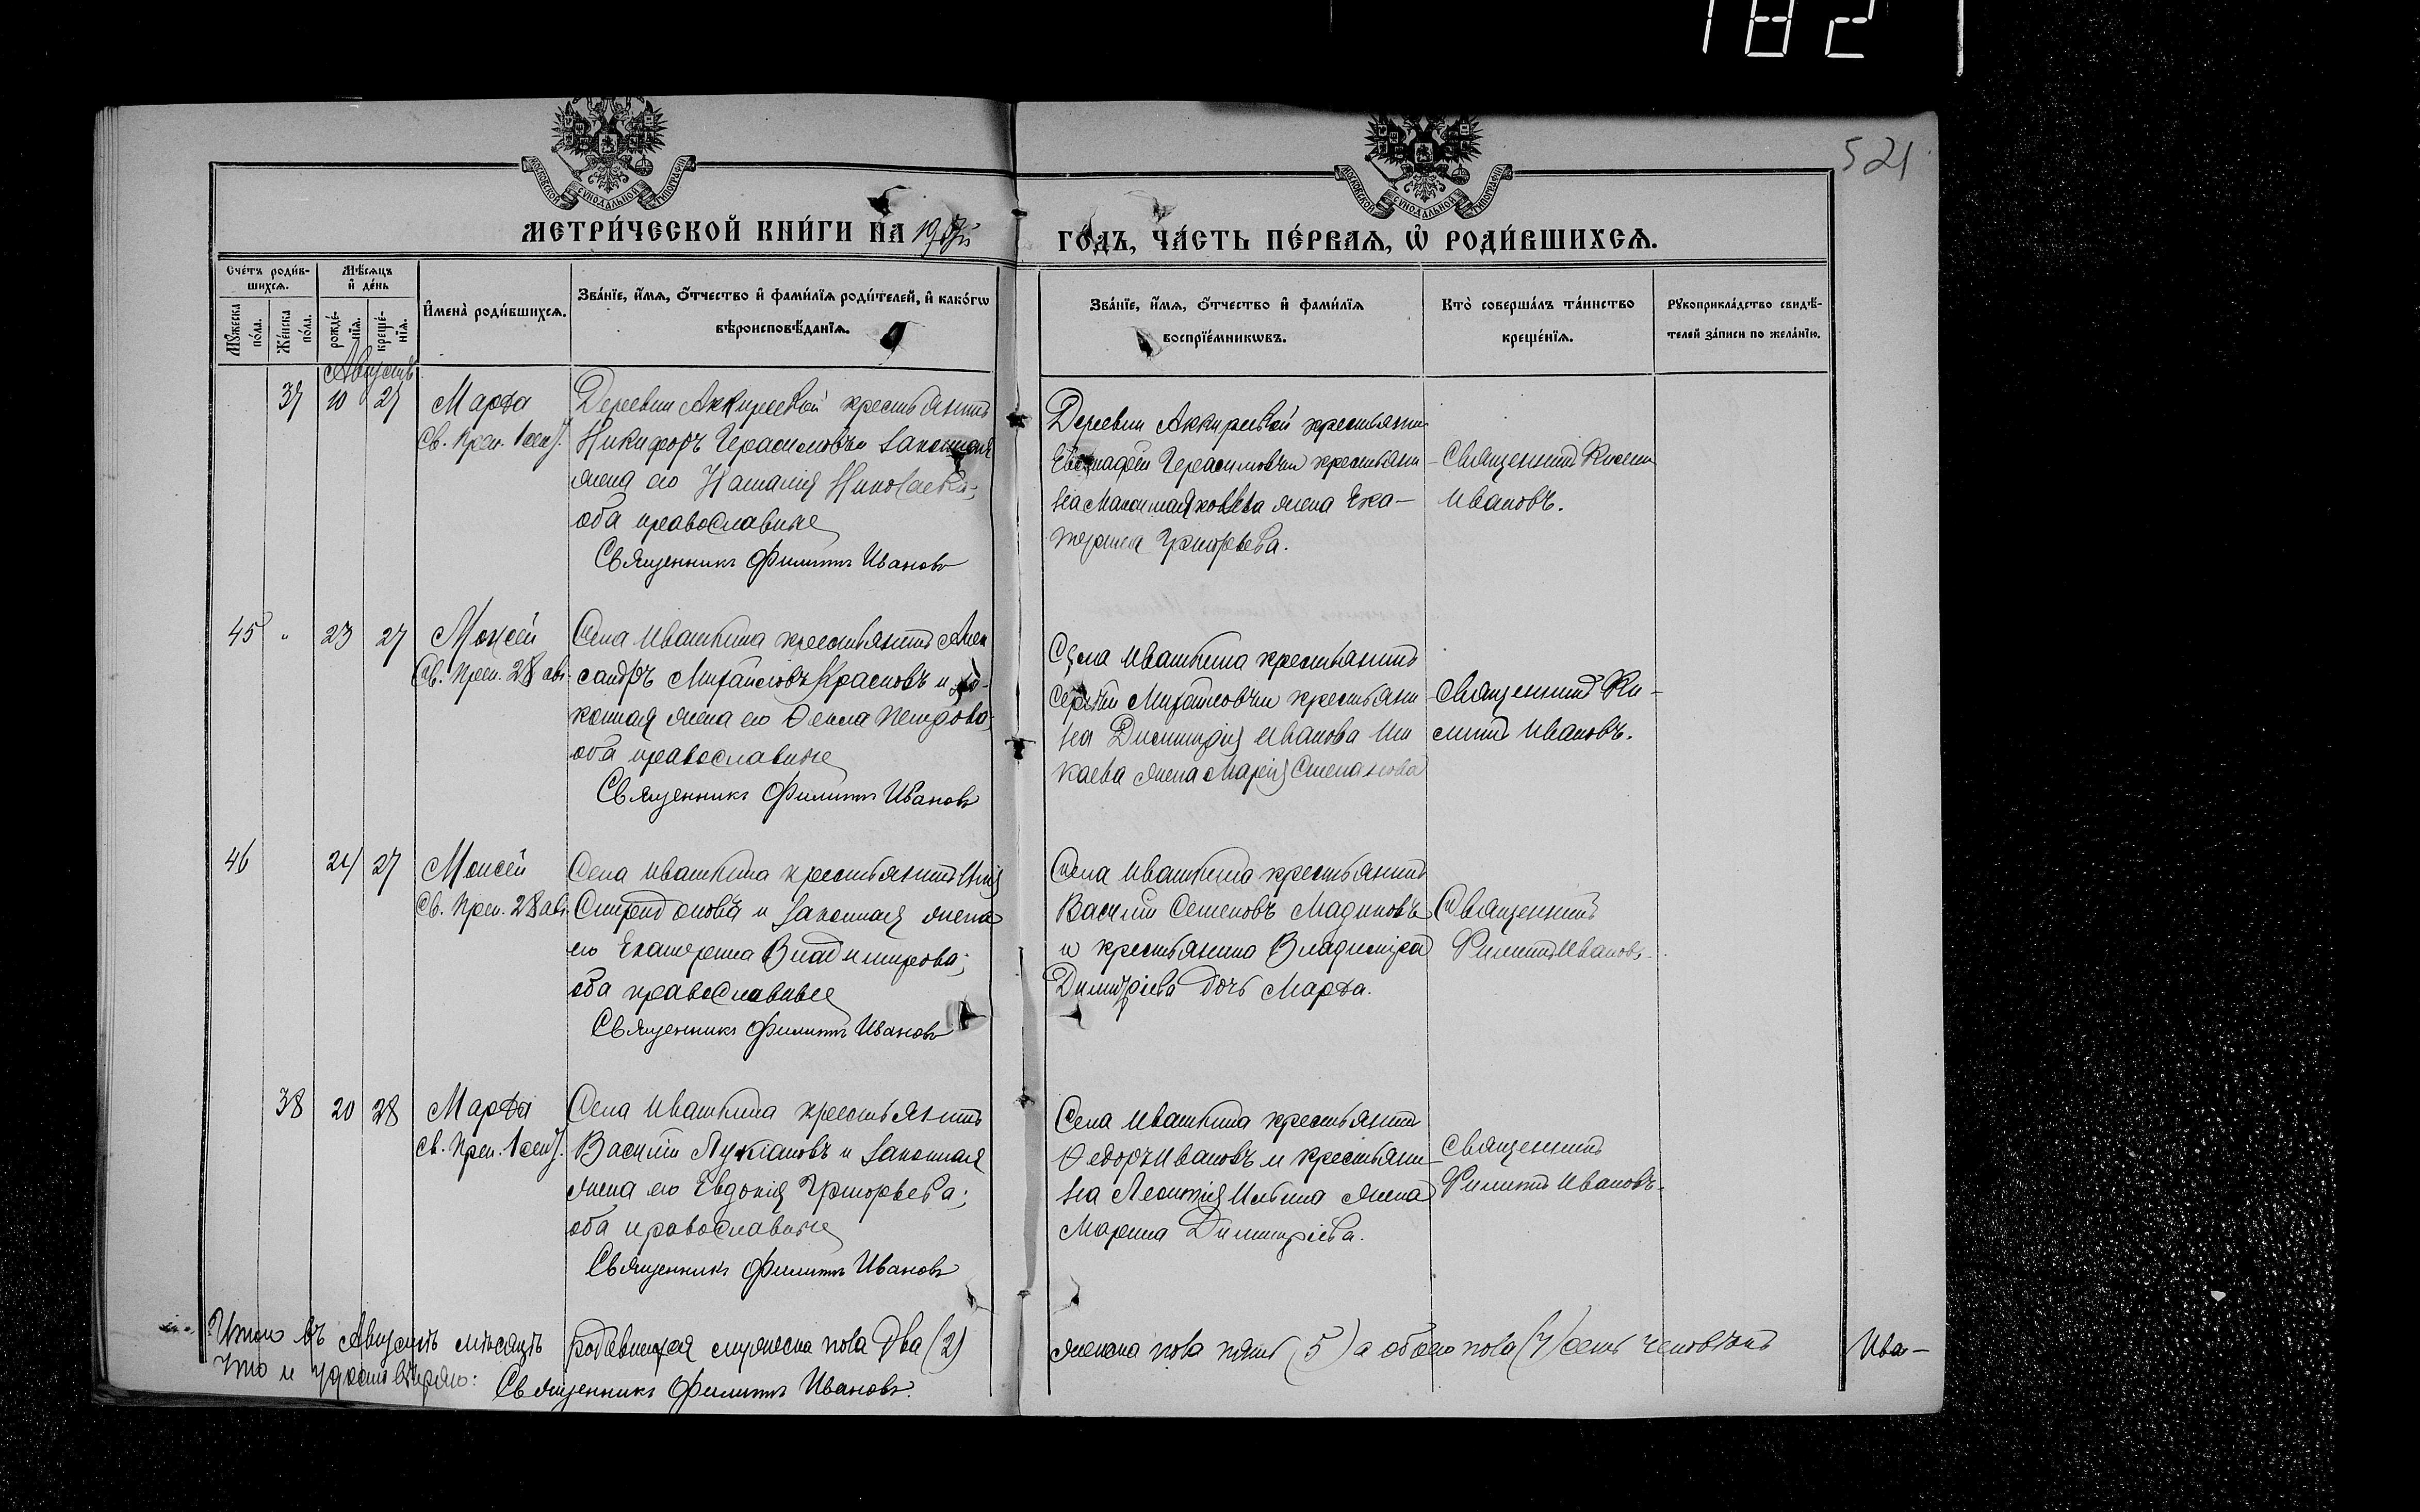 182
521
МОСКОВСКОЙ СѴНОДАЛЬНОЙ ТИПОГРАФІИ
МОСКОВСКОЙ СѴНОДАЛЬНОЙ ТИПОГРАФІИ
МЕТРИ́ЧЕСКОЙ КНИ́ГИ НА
ГО́ДЪ, ЧА́СТЬ ПЕ́РВАѦ, Ѡ҆ РОДИ́ВШИХСѦ.
Сче́тъ роди́в-
шихсѧ.
Мꙋ́жеска по́ла.
Же́нска по́ла.
Мѣ́сѧцъ
и҆ де́нь
рожде́-
нїѧ.
креще́-
нїѧ.
И҆мена̀ роди́вшихсѧ.
Зва́нїе, и҆́мѧ, ѻ҆́тчество и҆ фами́лїѧ роди́телей, и҆ како́гѡ
вѣроисповѣ́данїѧ.
Зва́нїе, и҆́мѧ, ѻ҆́тчество и҆ фами́лїѧ
воспрїе́мникѡвъ.
Кто̀ соверша́лъ та́инство
креще́нїѧ.
Рꙋкоприкла́дство свидѣ́-
телей за́писи по жела́нїю.
Августъ
37 10 27 Марфа
Св. Преп. 1 сент.
Деревни Аккиреевой крестьянинъ
Никифоръ Герасимовъ и законная
жена его Наталія Николаева;
оба православные
Священникъ Филиппъ Ивановъ
Деревни Аккиреевой крестьянинъ
Герасимовъ и крестьяни-
на Максима Яковлева жена Ека-
терина Григорьева.
Священникъ
Ивановъ.
45 " 23 27 Моисей
Св. Преп. 28 авг.
Села Ивашкина крестьянинъ Алек
сандръ Михайловъ Красновъ и за-
конная жена его Ѳекла Петрова;
оба православные
Священникъ Филиппъ Ивановъ
Села Ивашкина крестьянинъ
Сергѣй Михайловъ и крестьяни
на Димитрія Иванова
жена Марія Степанова
Священникъ Фи-
липпъ Ивановъ.
46 24 27 Моисей
Св. Преп. 28 авг.
Села Ивашкина крестьянинъ Илія
Спиридоновъ и законная жена
его Екатерина Владимирова;
оба православные
Священникъ Филиппъ Ивановъ
Села Ивашкина крестьянинъ
Василій Семеновъ Мадиковъ
и крестьянина Владиміра
Димитріева дочь Марфа.
Священникъ
Филиппъ Ивановъ.
38 20 28 Марфа
Св. Преп. 1 сент.
Села Ивашкина крестьянинъ
Василій Лукіановъ и законная
жена его Евдокія Григорьева;
оба православные
Священникъ Филиппъ Ивановъ
Села Ивашкина крестьянинъ
Ѳедоръ Ивановъ и крестьяни-
на Леонтія Ильина жена
Марина Димитріева.
Священникъ
Филиппъ Ивановъ.
Итого въ Августѣ мѣсяцѣ родившихся мужеска пола два (2)
женска пола пять (5) а обоего пола (7) семь человѣкъ
Ива-
что и удостовѣряю: Священникъ Филиппъ Ивановъ.